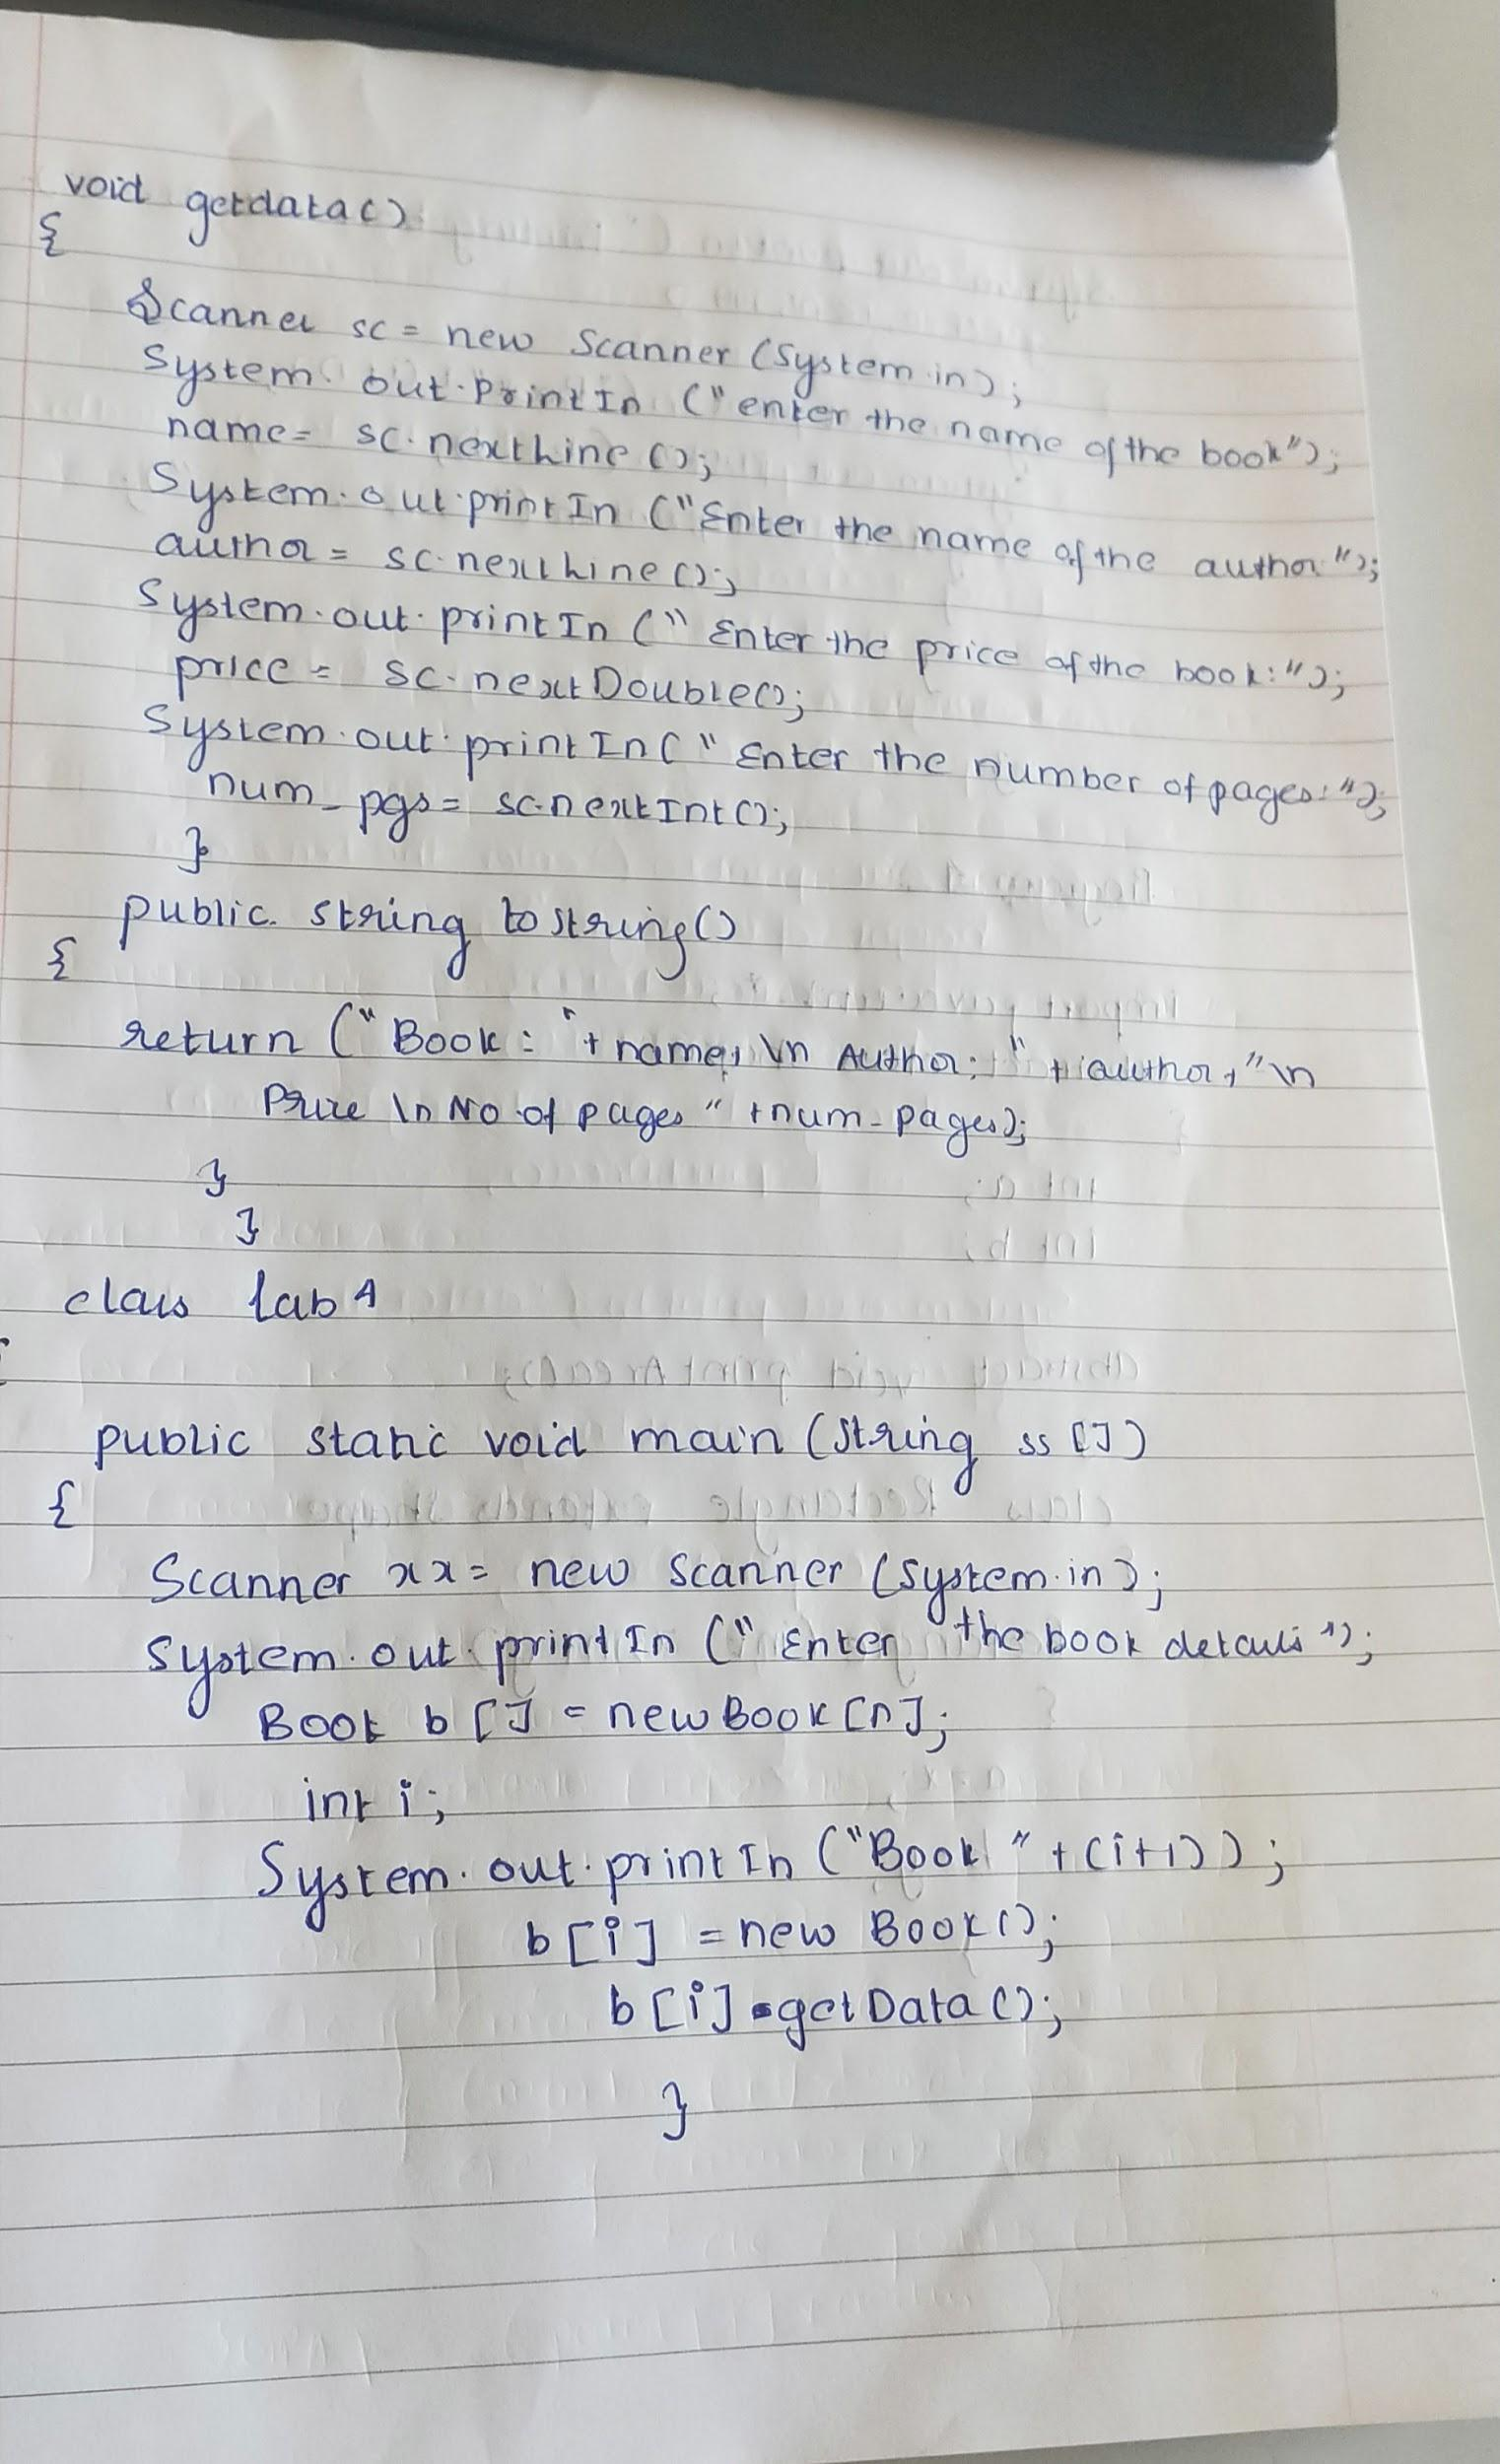 void getdata()
{
Scanner sc = new Scanner (System.in);
System.out.PrintIn ("enter the name of the book");
name= sc.nextLine ();
System.out.printIn ("Enter the name of the author");
author= sc.nextLine();
System.out.printIn (" Enter the price of the book:");
price = sc.nextDouble();
System.out.printIn(" Enter the number of pages:");
num_pgs= sc.nextInt();
}
public string tostring()
{
return ("Book: "+ name, \n Author: " + author, "\n
Price \n No of pages " +num_pages);
}
}
class lab 4
{
public static void main (String ss [])
{
Scanner xx= new Scanner (System.in);
System.out.printIn (" Enter the book details");
Book b [] = new Book [n];
int i;
System.out.printIn ("Book " + (i+1));
b[i] = new Book();
b[i].getData();
}